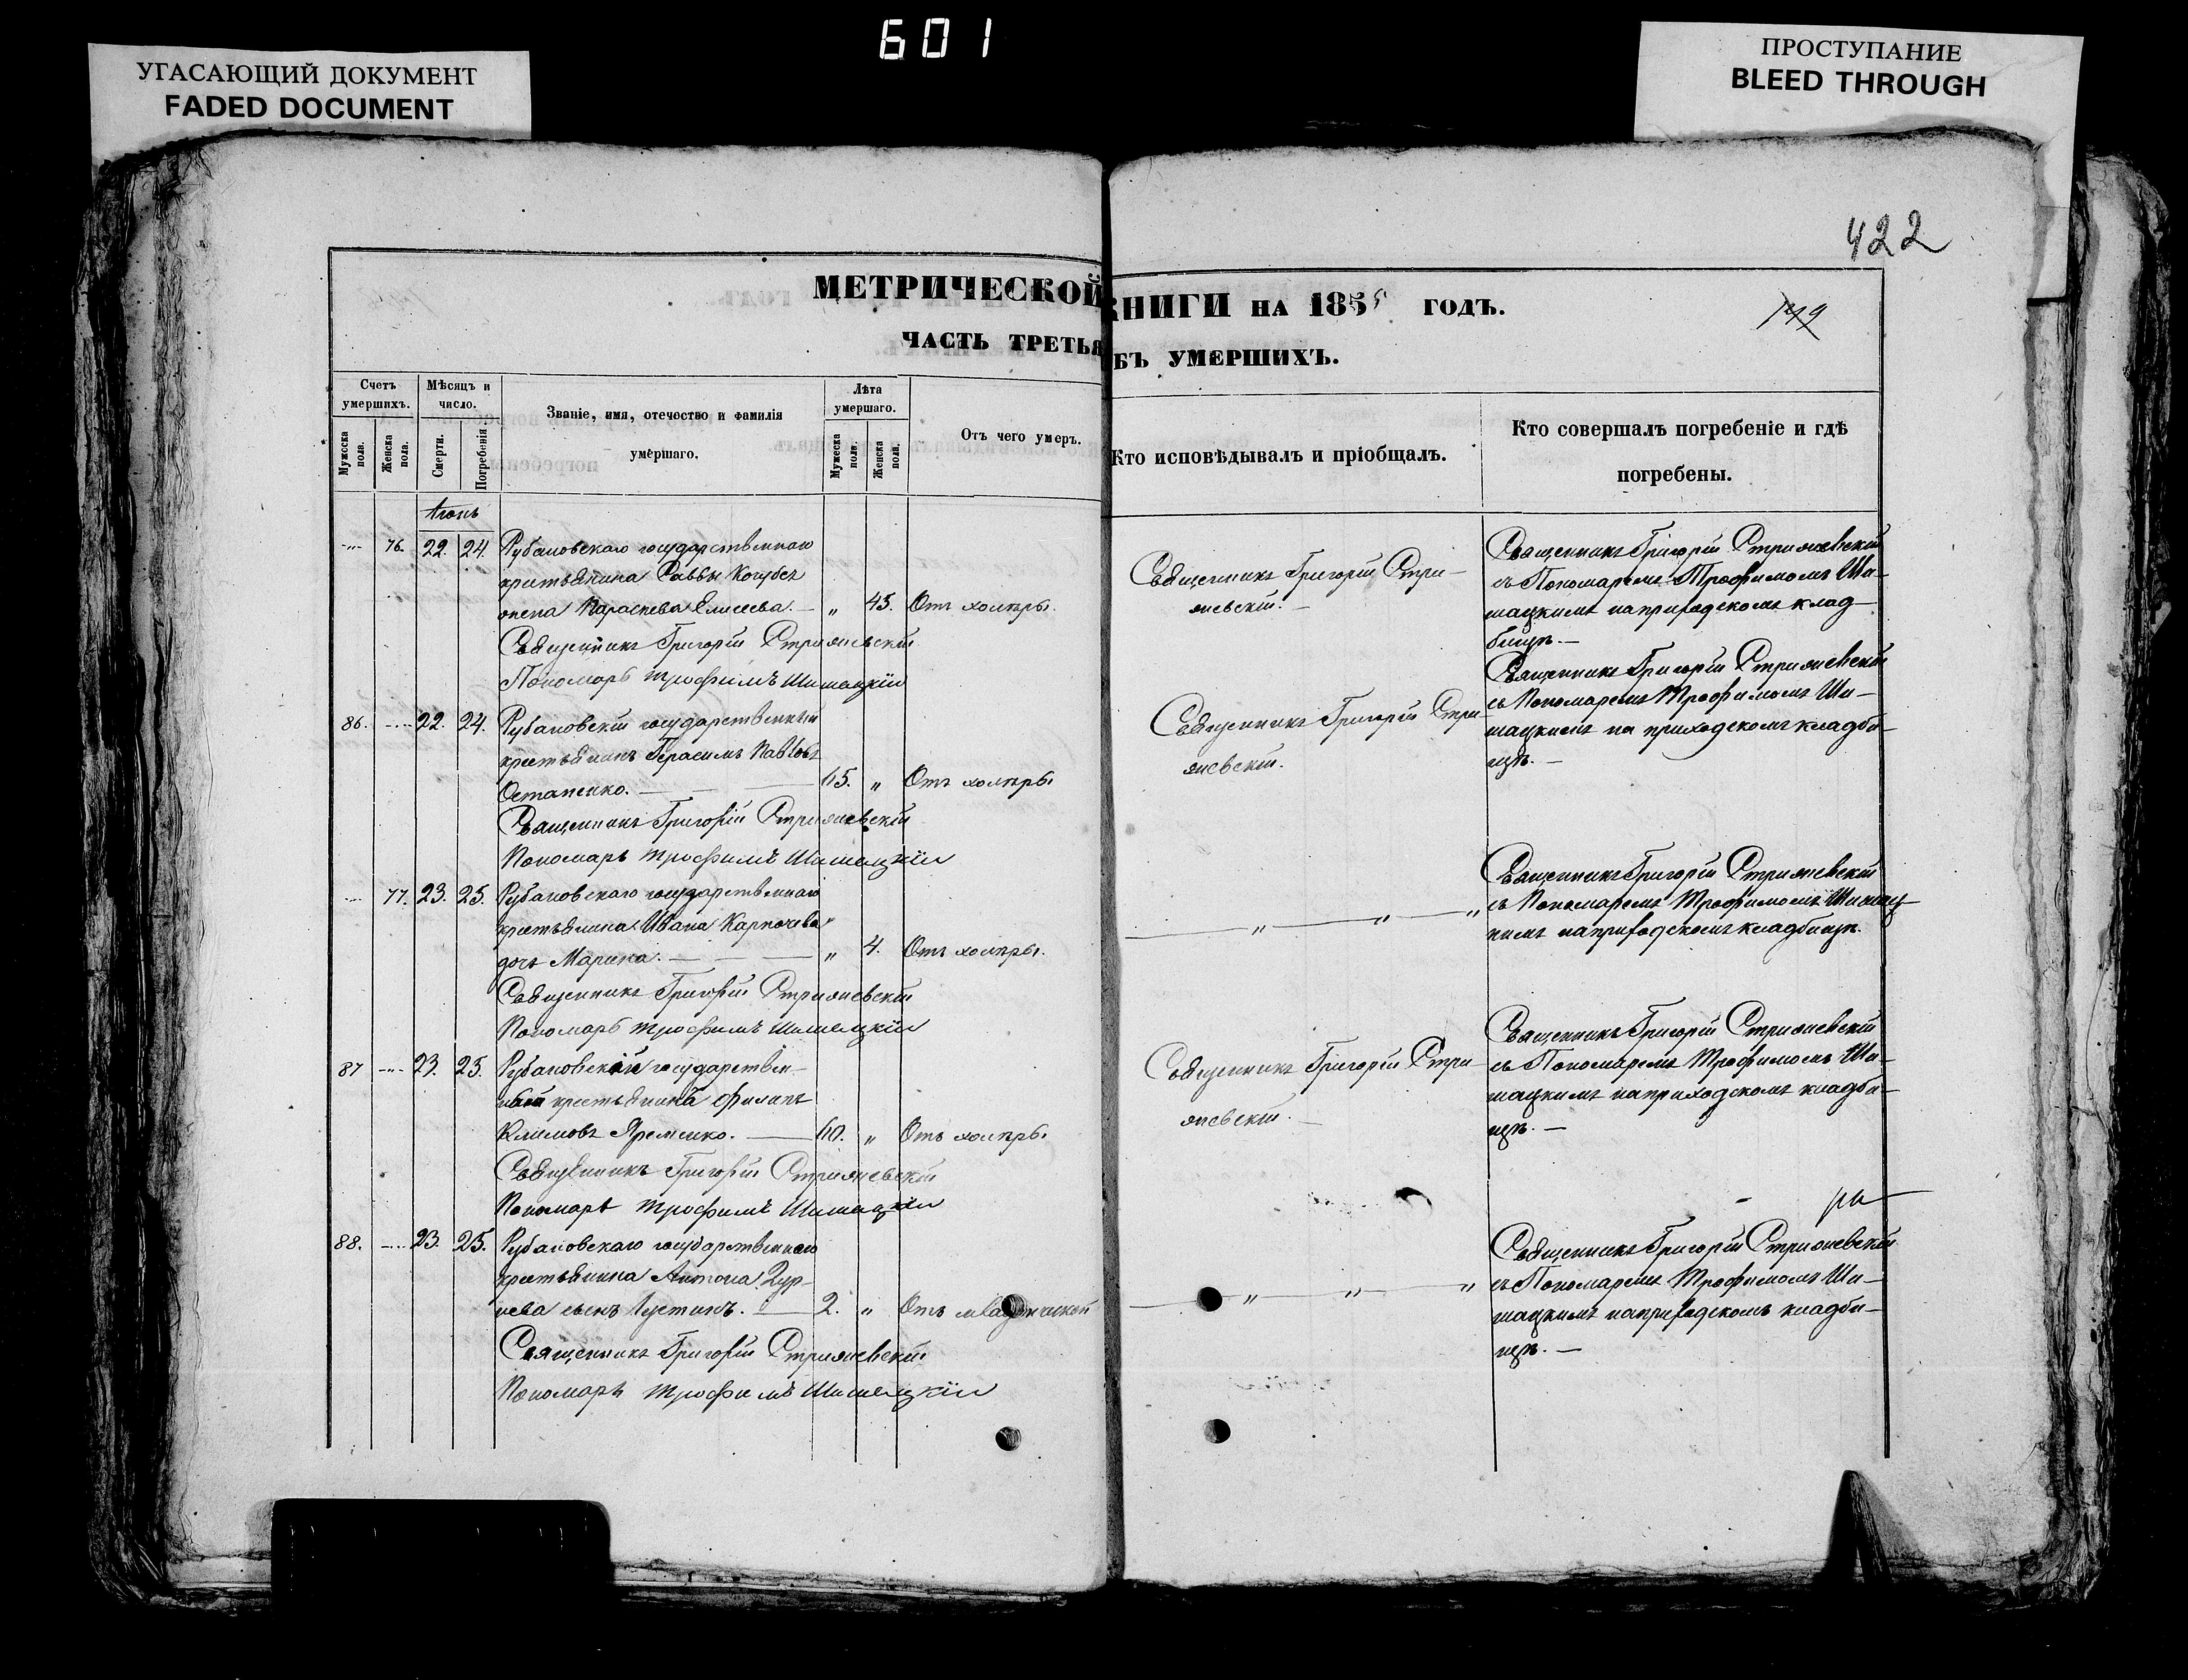 601
УГАСАЮЩИЙ ДОКУМЕНТ
FADED DOCUMENT
ПРОСТУПАНИЕ
BLEED THROUGH
422
МЕТРИЧЕСКОЙ КНИГИ НА 1855 ГОДЪ.
149
ЧАСТЬ ТРЕТЬЯ БЪ УМЕРШИХЪ.
Счетъ умершихъ.
Мѣсяцъ и число.
Званіе, имя, отечество и фамилія умершаго.
Лѣта умершаго.
Отъ чего умеръ.
Кто исповѣдывалъ и пріобщалъ.
Кто совершалъ погребеніе и гдѣ погребены.
Мужеска пола.
Женска пола.
Смерти.
Погребенія
Мужеска пола.
Женска пола.
Іюнь
76. 22. 24. Рубановскаго государственнаго
крестьянина Саввы Когубея
жена Параскева Елисеева. — „ 45. Отъ холеры.
Священникъ Григорій Стрижевскій
Пономарь Трофимъ Шишацкій
Священникъ Григорій Стри-
жевскій. —
Священникъ Григорій Стрижевскій
съ Пономаремъ Трофимомъ Ши-
шацкимъ на приходскомъ клад-
бищѣ. —
86. 22. 24. Рубановскій государственный
крестьянинъ Герасимъ Павловъ
Остапенко. — 65. „ Отъ холеры
Священникъ Григорій Стрижевскій
Пономарь Трофимъ Шишацкій
Священникъ Григорій Стри-
жевскій.
Священникъ Григорій Стрижевскій
съ Пономаремъ Трофимомъ Ши-
шацкимъ на приходскомъ кладби-
щѣ. —
77. 23. 25. Рубановскаго государственнаго
крестьянина Ивана Карпочева
дочь Марина. — „ 4. Отъ холеры.
Священникъ Григорій Стрижевскій
Пономарь Трофимъ Шишацкій
„ — „ — „
Священникъ Григорій Стрижевскій
съ Пономаремъ Трофимомъ Шишац-
кимъ на приходскомъ кладбищѣ.
87 23. 25. Рубановскій государствен-
ный крестьянинъ Филипъ
Климовъ Яременко. — 60. „ Отъ холеры
Священникъ Григорій Стрижевскій
Пономарь Трофимъ Шишацкій
Священникъ Григорій Стри-
жевскій. —
Священникъ Григорій Стрижевскій
съ Пономаремъ Трофимомъ Ши-
шацкимъ на приходскомъ кладби-
щѣ. —
88. 23. 25. Рубановскаго государственнаго
крестьянина Антона
сынъ Іустинъ. — 2. „ Отъ младенческой
Священникъ Григорій Стрижевскій
Пономарь Трофимъ Шишацкій
„ — „ — „
Священникъ Григорій Стрижевскій
съ Пономаремъ Трофимомъ Ши-
шацкимъ на приходскомъ кладби-
щѣ. —